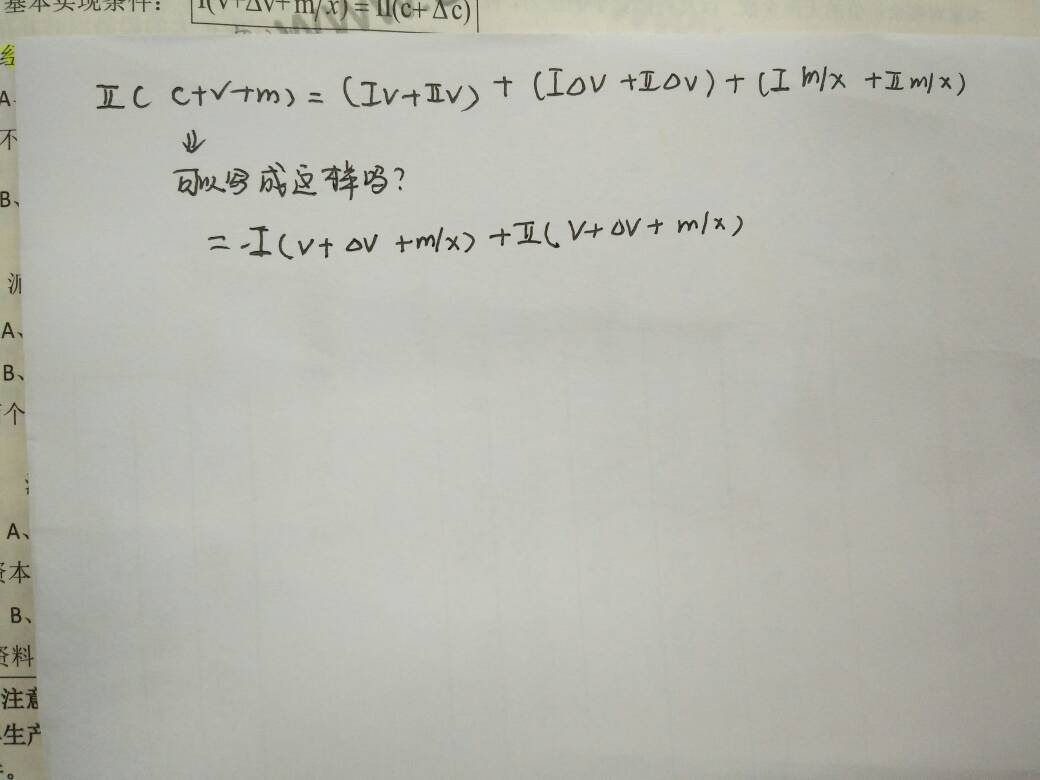 基本实现条件： I(v+Δv+m/x) = II(c+Δc)
A
不
B、
派
A、
B、
个
A、
资本
B、
资料
注意
生产
II( c+v+m) = (Iv+IIv) + (IΔv+IIΔv) + (I m/x +II m/x)
⇓
可以写成这样吗?
= I(v+ Δv +m/x) +II( v+ Δv+ m/x)